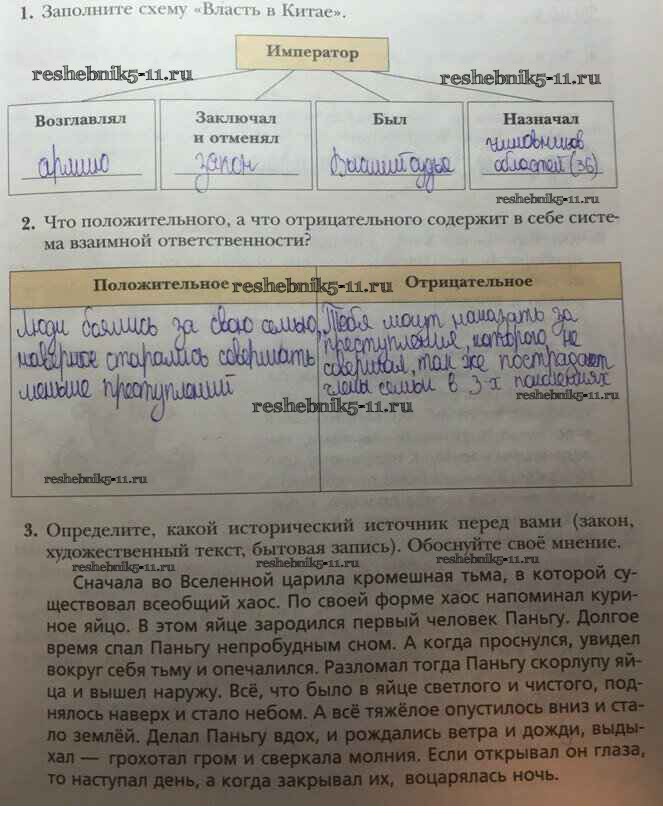 1. Заполните схему «Власть в Китае».
Император
reshebnik5-11.ru
reshebnik5-11.ru
Возглавлял
Заключал
и отменял
Был
Назначал
армию
закон
Высший судья
чиновников
областей (36)
reshebnik5-11.ru
2. Что положительного, а что отрицательного содержит в себе систе-
ма взаимной ответственности?
Положительное
reshebnik5-11.ru
Отрицательное
Люди боялись за свою семью,
наверное старались совершать
меньше преступлений
Тебя могут наказать за
преступления, которого не
совершал, так же пострадают
члены семьи в 3-х поколениях
reshebnik5-11.ru
reshebnik5-11.ru
3. Определите, какой исторический источник перед вами (закон,
художественный текст, бытовая запись). Обоснуйте своё мнение.
reshebnik5-11.ru
reshebnik5-11.ru
Сначала во Вселенной царила кромешная тьма, в которой су-
ществовал всеобщий хаос. По своей форме хаос напоминал кури-
ное яйцо. В этом яйце зародился первый человек Паньгу. Долгое
время спал Паньгу непробудным сном. А когда проснулся, увидел
вокруг себя тьму и опечалился. Разломал тогда Паньгу скорлупу яй-
ца и вышел наружу. Всё, что было в яйце светлого и чистого, под-
нялось наверх и стало небом. А всё тяжёлое опустилось вниз и ста-
ло землёй. Делал Паньгу вдох, и рождались ветра и дожди, выды-
хал — грохотал гром и сверкала молния. Если открывал он глаза,
то наступал день, а когда закрывал их, воцарялась ночь.